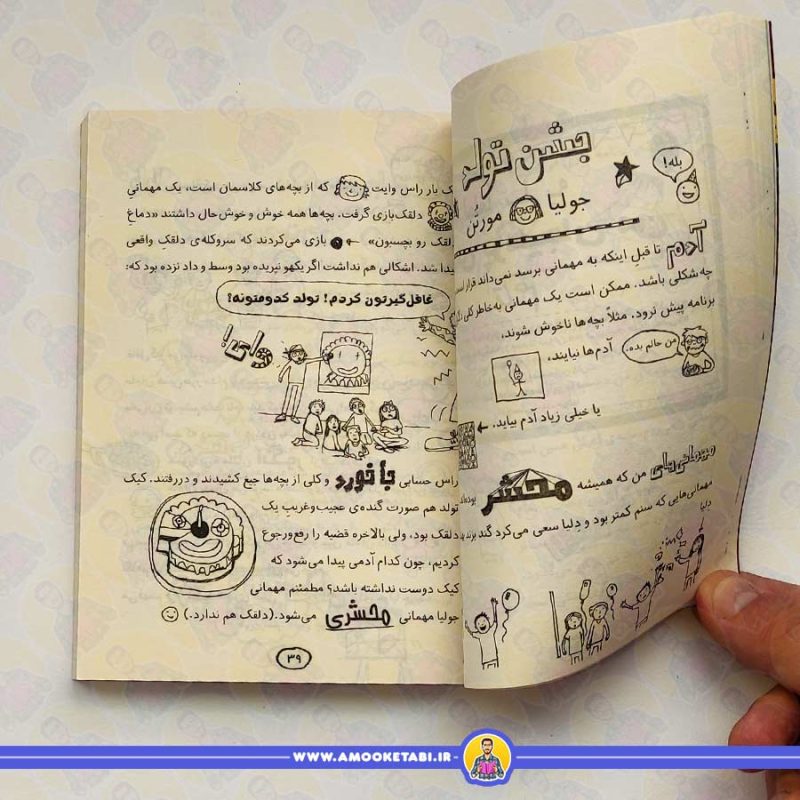 جشن تولد
بله!
جولیا مورتُن
آدم تا قبل اینکه به مهمانی برسد نمی‌داند قرار است
چه‌شکلی باشد. ممکن است یک مهمانی به‌خاطر کلی
برنامه پیش نرود. مثلاً بچه‌ها ناخوش شوند،
من حالم بده.
آدم‌ها نیایند،
یا خیلی زیاد آدم بیاید.
مهمانی‌های من که همیشه محشر بوده‌اند
مهمانی‌هایی که سنم کمتر بود و دِلیا سعی می‌کرد گند بزند
دِلیا
یک بار راس وایت که از بچه‌های کلاسمان است، یک مهمانیِ
دلقک‌بازی گرفت. بچه‌ها همه خوش و خوش‌حال داشتند «دماغِ
دلقک رو بچسبون» بازی می‌کردند که سروکله‌ی دلقکِ واقعی
پیدا شد. اشکالی هم نداشت اگر یکهو نپریده بود وسط و داد نزده بود که:
غافل‌گیرتون کردم! تولد کدومتونه؟
وای!
راس حسابی جا خورد و کلی از بچه‌ها جیغ کشیدند و دررفتند. کیک
تولد هم صورت گنده‌ی عجیب‌وغریبِ یک
دلقک بود، ولی بالاخره قضیه را رفع‌ورجوع
کردیم، چون کدام آدمی پیدا می‌شود که
کیک دوست نداشته باشد؟ مطمئنم مهمانی
جولیا مهمانی محشری می‌شود. (دلقک هم ندارد.)
۳۹
WWW.AMOOKETABI.IR